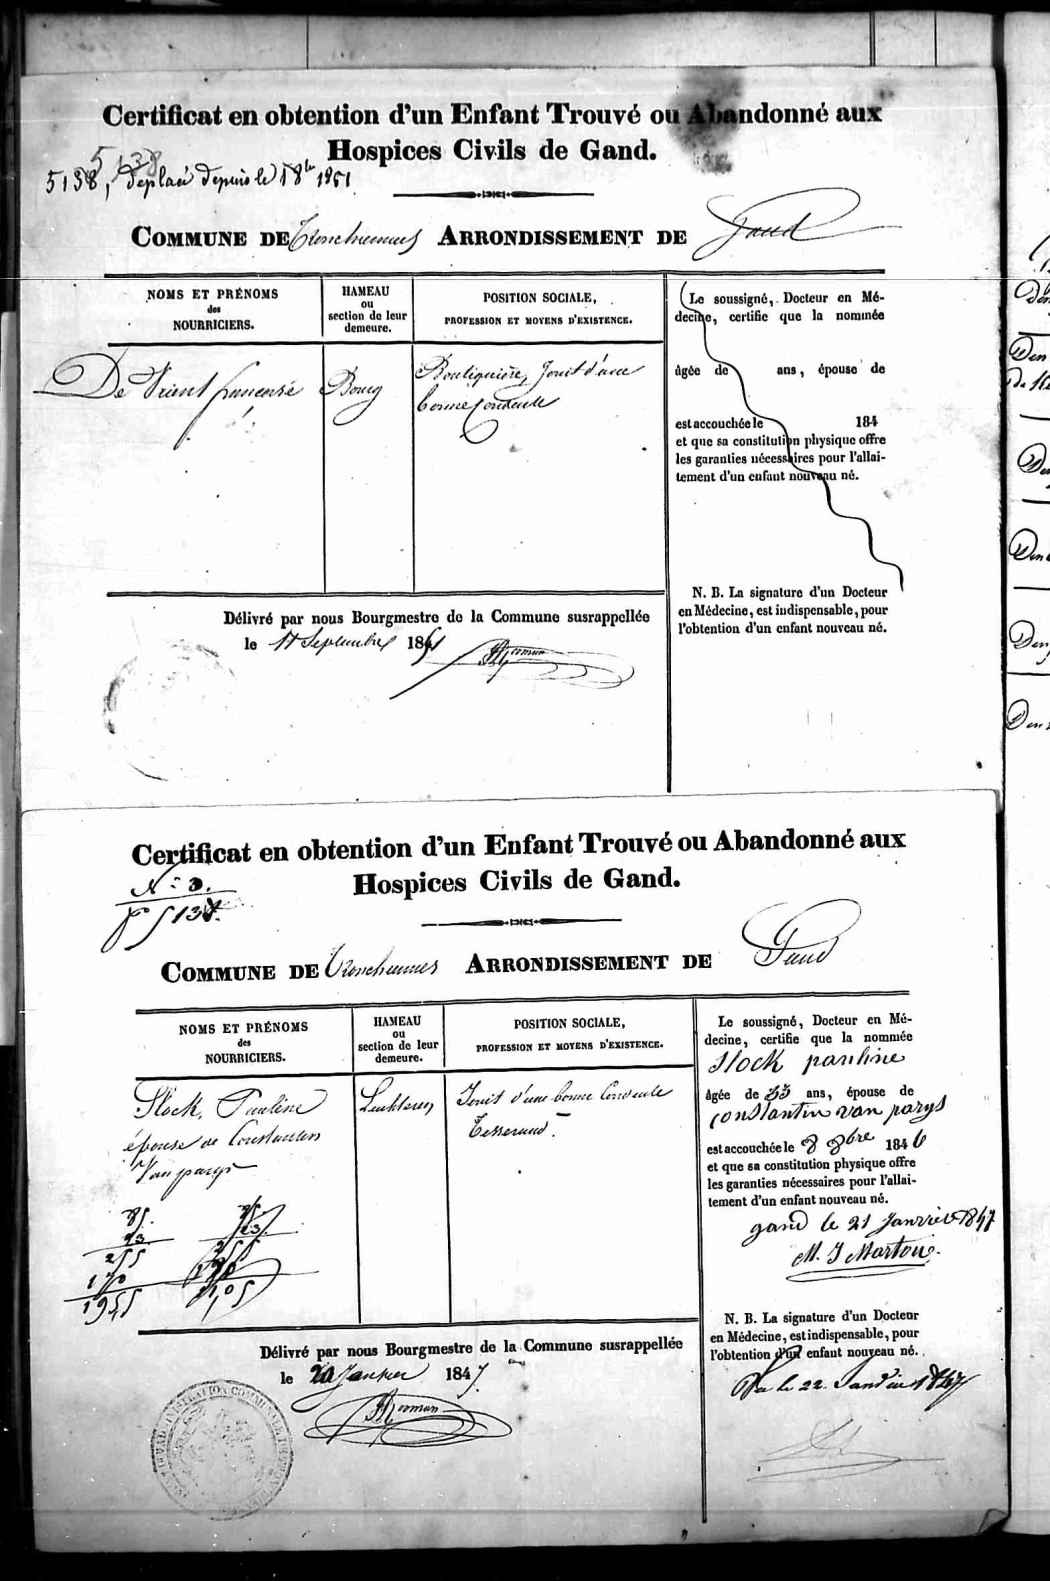 Certificat en obtention d'un Enfant Trouvé ou Abandonné aux
Hospices Civils de Gand.
5138
5138, déplacé depuis le 18bre 1851
COMMUNE DE Tronchiennes ARRONDISSEMENT DE Gand
NOMS ET PRÉNOMS
des
NOURRICIERS.
HAMEAU
ou
section de leur
demeure.
POSITION SOCIALE,
PROFESSION ET MOYENS D'EXISTENCE.
De Vrient
Bourg
Boutiquière, Jouit d'une
bonne Conduite
Le soussigné, Docteur en Mé-
decine, certifie que la nommée
âgée de ans, épouse de
est accouchée le 184
et que sa constitution physique offre
les garanties nécessaires pour l'allai-
tement d'un enfant nouveau né.
N. B. La signature d'un Docteur
en Médecine, est indispensable, pour
l'obtention d'un enfant nouveau né.
Délivré par nous Bourgmestre de la Commune susrappellée
le 17 Septembre 1851
Certificat en obtention d'un Enfant Trouvé ou Abandonné aux
Hospices Civils de Gand.
N° 3.
5138.
COMMUNE DE Tronchiennes ARRONDISSEMENT DE Gand
NOMS ET PRÉNOMS
des
NOURRICIERS.
HAMEAU
ou
section de leur
demeure.
POSITION SOCIALE,
PROFESSION ET MOYENS D'EXISTENCE.
Stock, Pauline
épouse de Constantin
Van parys
Luchteren
Jouit d'une bonne Conduite
Tisserand.
85.
23.
255
170
1955
Le soussigné, Docteur en Mé-
decine, certifie que la nommée
Stock pauline
âgée de 33 ans, épouse de
constantin van parys
est accouchée le 8 9bre 1846
et que sa constitution physique offre
les garanties nécessaires pour l'allai-
tement d'un enfant nouveau né.
gand le 21 Janvier 1847
M. J Martou.
N. B. La signature d'un Docteur
en Médecine, est indispensable, pour
l'obtention d'un enfant nouveau né.
Vu le 22 Janvier 1847
Délivré par nous Bourgmestre de la Commune susrappellée
le 20 Janvier 1847